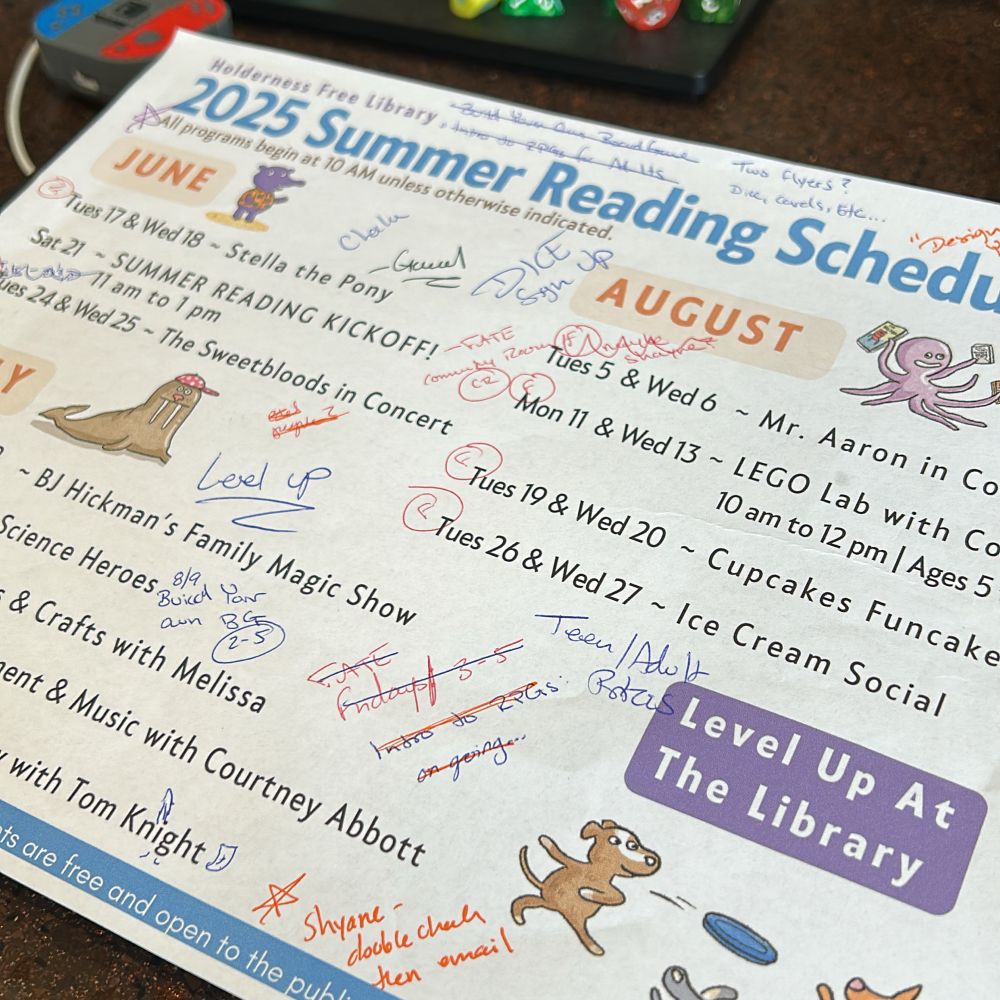 Holderness Free Library
2025 Summer Reading Schedu
All programs begin at 10 AM unless otherwise indicated.
Two flyers?
Dice, cards, Etc...
"Design
JUNE
Tues 17 & Wed 18 ~ Stella the Pony
Sat 21 ~ SUMMER READING KICKOFF!
11 am to 1 pm
ues 24 & Wed 25 ~ The Sweetbloods in Concert
LY
~ BJ Hickman's Family Magic Show
Science Heroes
s & Crafts with Melissa
ent & Music with Courtney Abbott
with Tom Knight
Level up
8/9
Build Your
own BG
2-5
Fridays 3-5
Intro to RPGs
on going...
AUGUST
Tues 5 & Wed 6 ~ Mr. Aaron in Co
Mon 11 & Wed 13 ~ LEGO Lab with Co
10 am to 12 pm | Ages 5
Tues 19 & Wed 20 ~ Cupcakes Funcake
Tues 26 & Wed 27 ~ Ice Cream Social
Teen/Adult
Level Up At
The Library
Shyane -
double check
then email
nts are free and open to the publi